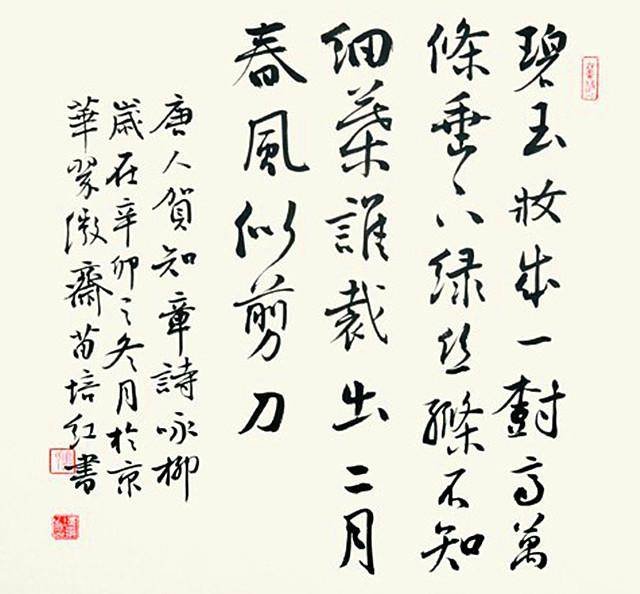 碧玉妝成一樹高萬
條垂下绿丝縧不知
細葉誰裁出二月
春風似剪刀
唐人賀知章詩咏柳
歲在辛卯之冬月於京
華翠微齋苗培红書